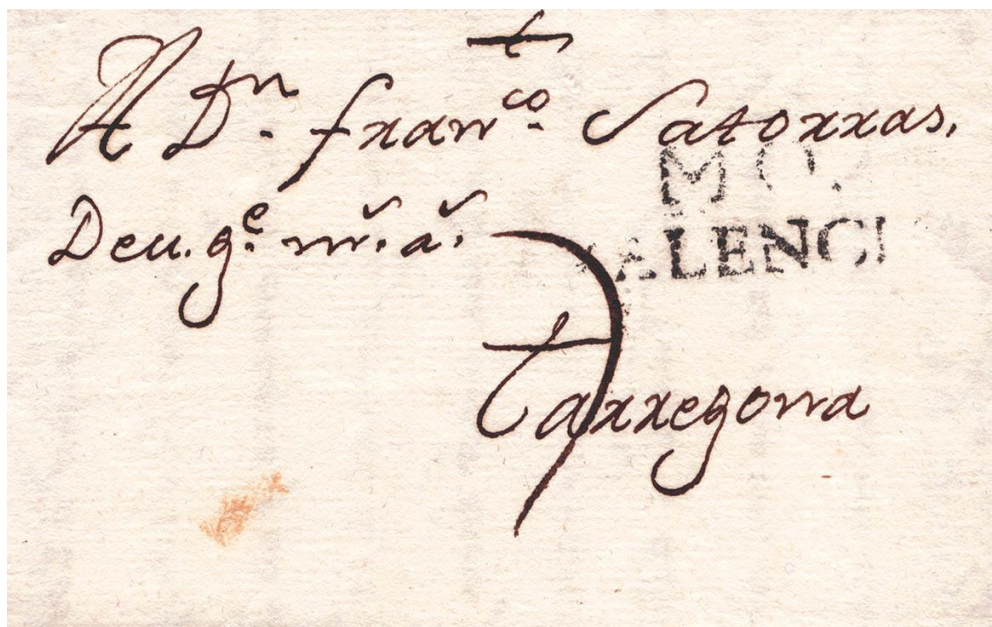 A Dn. Franco. Satorras.
MO
Deu. ge. m. a.
ALENCI
7
Tarregona